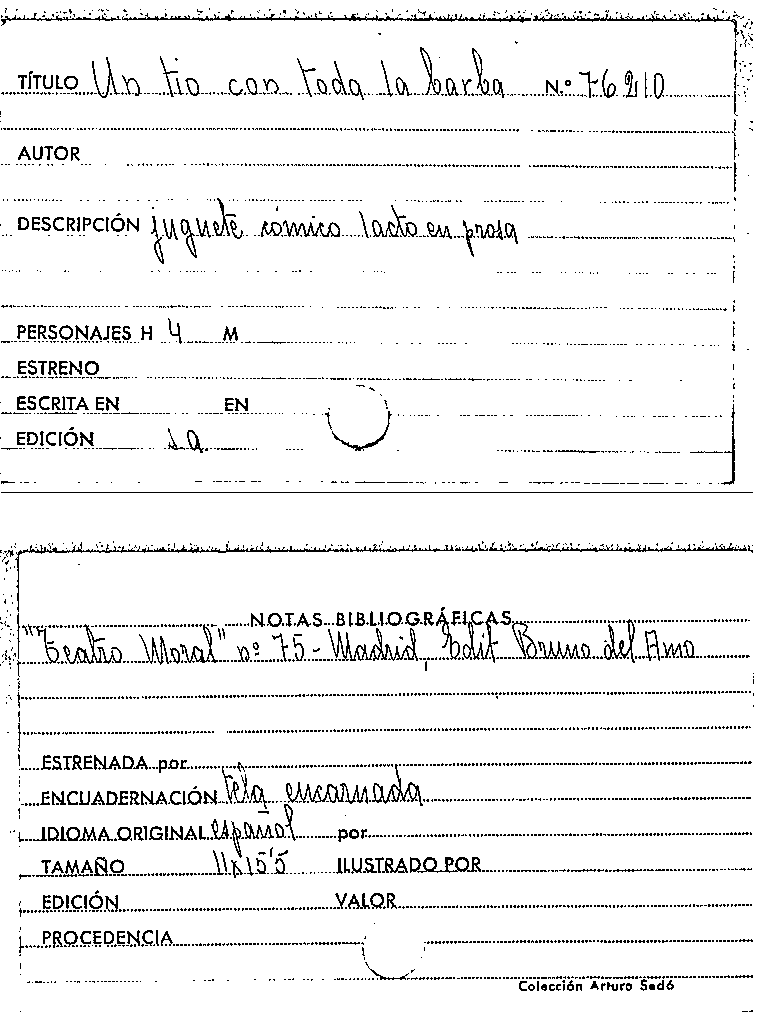 TÍTULO Un tio con toda la barba N.º 76210
AUTOR
DESCRIPCIÓN juguete cómico 1 acto en prosa
PERSONAJES H 4 M
ESTRENO
ESCRITA EN EN
EDICIÓN s.a.
NOTAS BIBLIOGRÁFICAS
"Teatro Moral" nº 75 - Madrid, Edit Bruno del Amo
ESTRENADA por
ENCUADERNACIÓN tela encarnada
IDIOMA ORIGINAL español por
TAMAÑO 11x15'5 ILUSTRADO POR
EDICIÓN VALOR
PROCEDENCIA
Colección Arturo Sedó